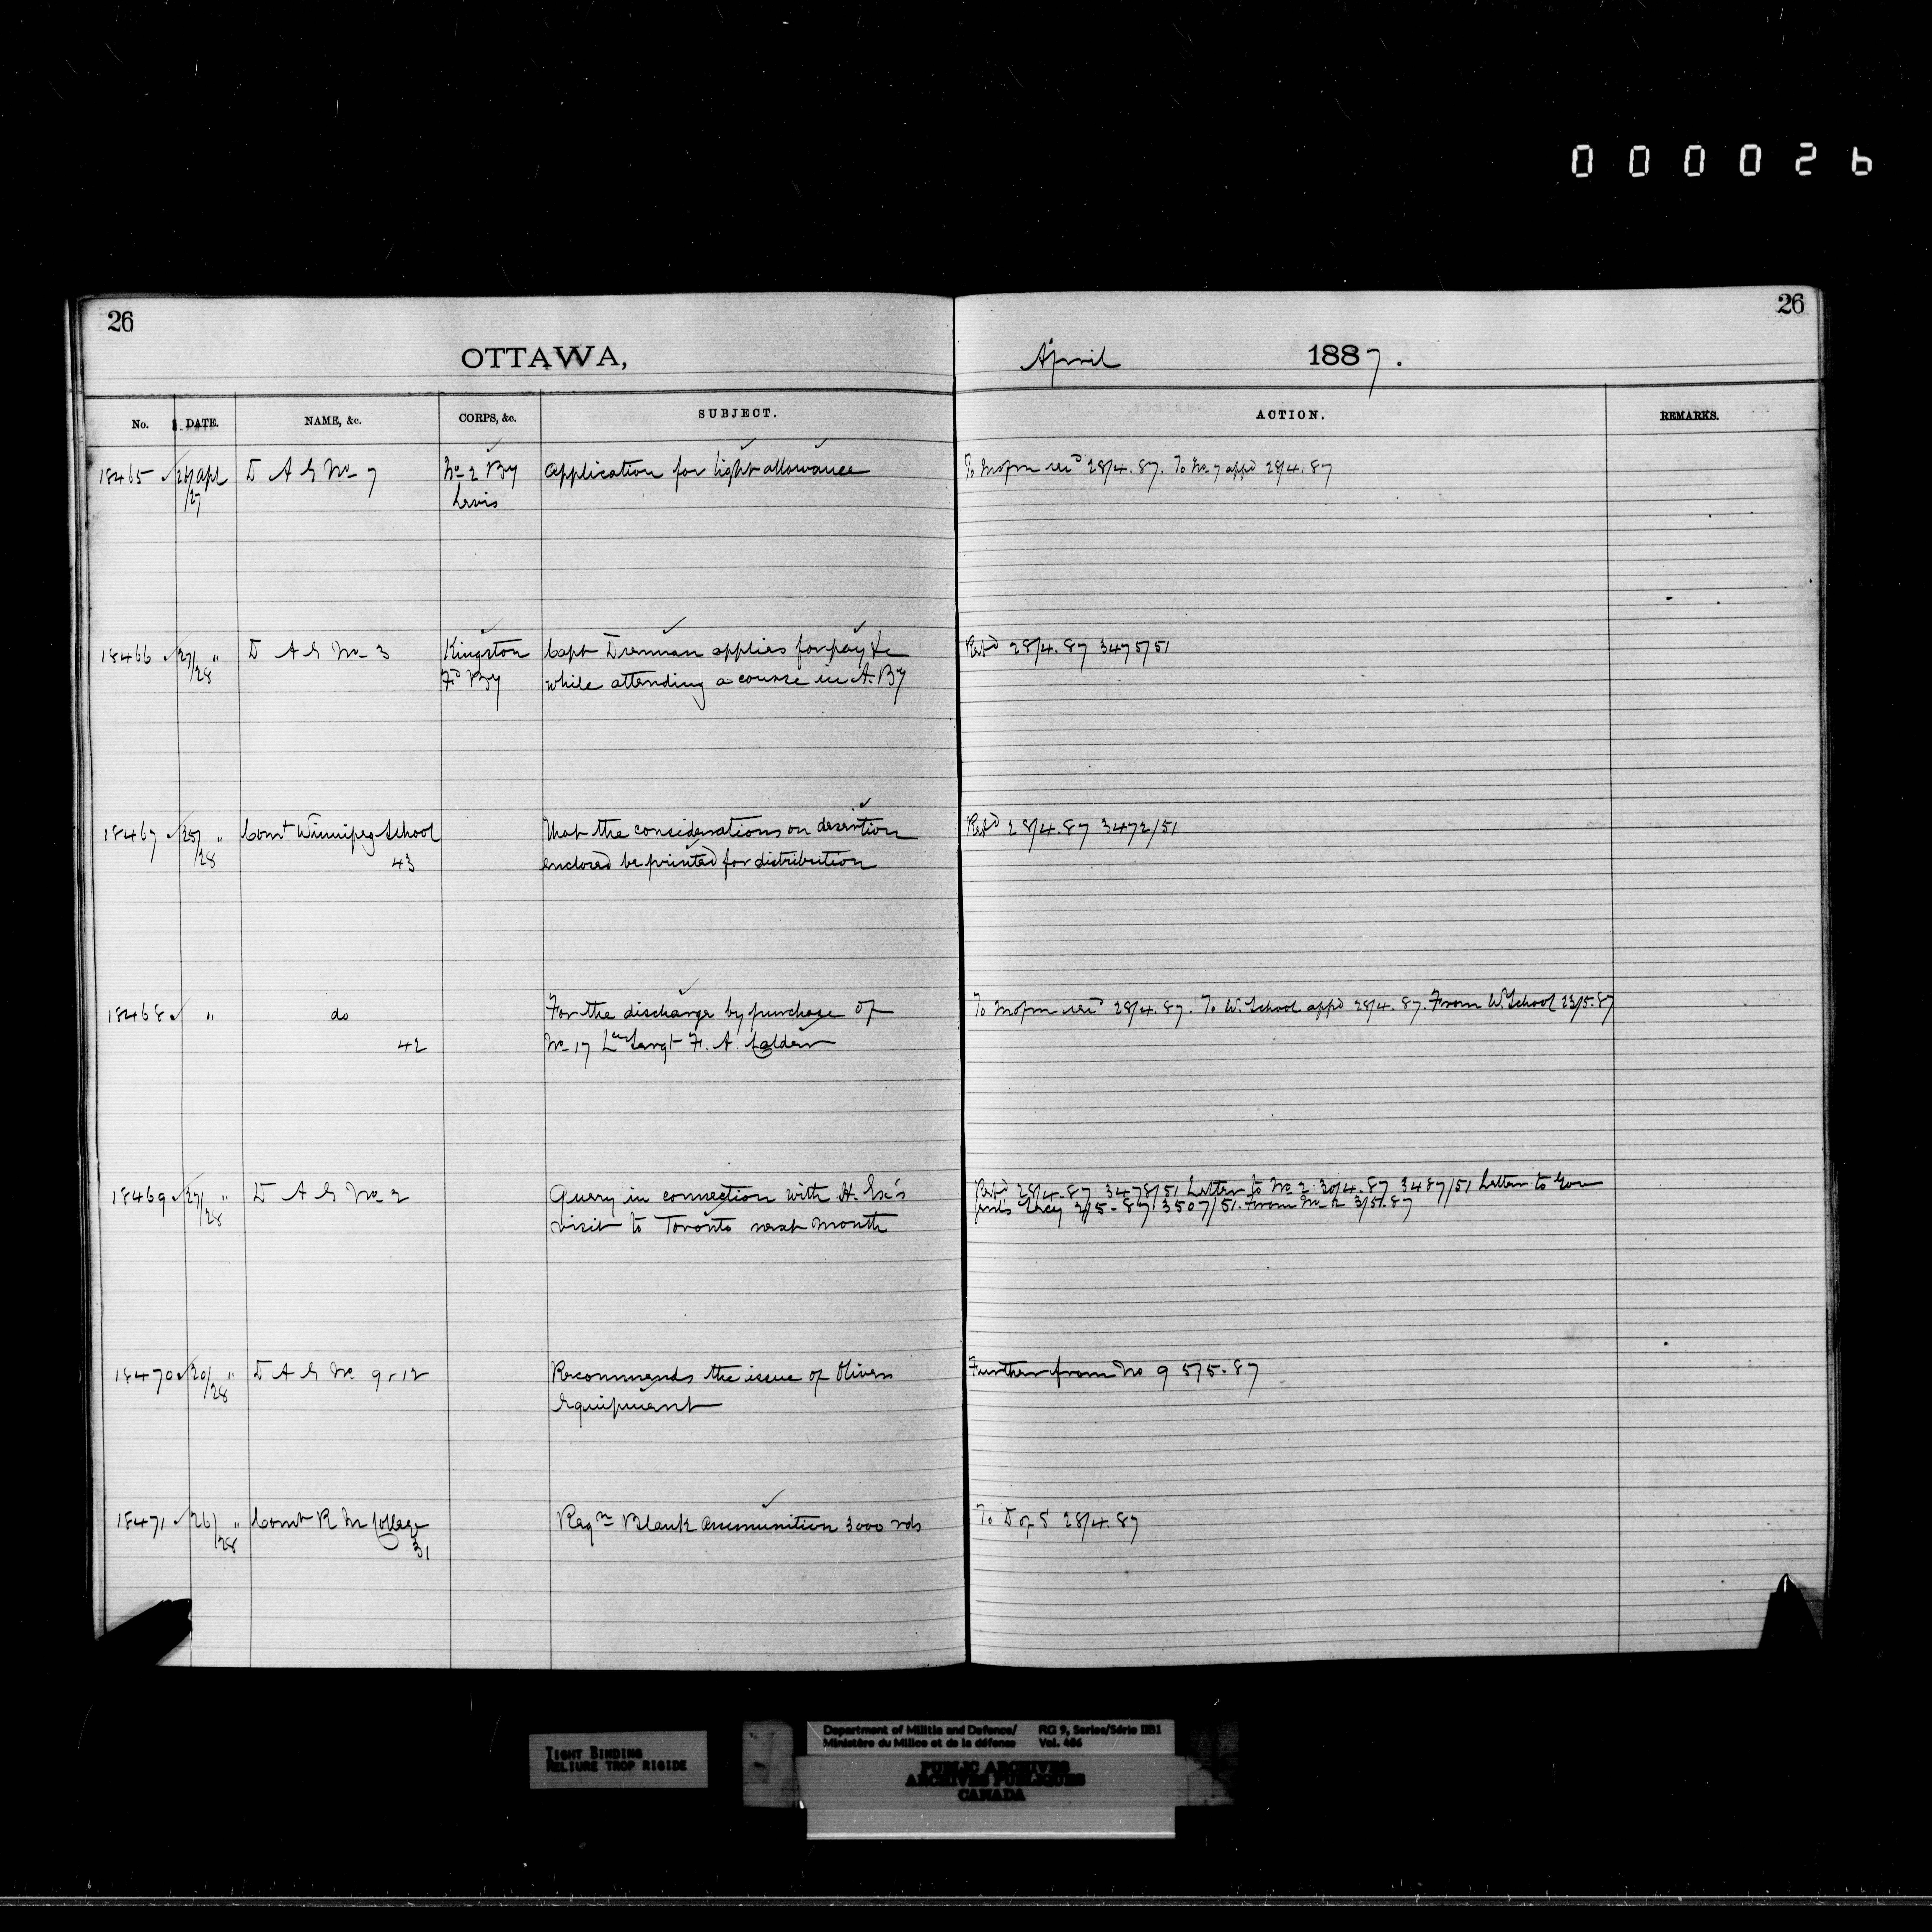 000026
26
26
OTTAWA,
April 1887.
No. DATE. NAME, &c. CORPS, &c. SUBJECT. ACTION. REMARKS.
18465 26/27 apl D A G No 7 No 2 By Application for light allowance To mofm 28/4.87. To No 7 appd 28/4.87
Levis
18466 27/28 " D A G No 3 Kingston Capt Drennan applies for pay &c Retd 28/4.87 3475/51
Fd By while attending a course in A. By
18467 25/28 " Comt Winnipeg School That the considerations on desertion Retd 28/4.87 3472/51
43 enclosed be printed for distribution
18468 " do For the discharge by purchase of To mofm 28/4.87. To W. School appd 28/4.87. From W. School 23/5.87
42 No 17 Lce Sergt F. A.
18469 27/28 " D A G No 2 Query in connection with H. Ex's 28/4.87 3478/51 Letter to No 2 30/4.87 3487/51 Letter to Gov
visit to Toronto next month Secy 2/5-87 3507/51. From No 2 3/5/.87
18470 20/28 " D A G No 9 & 12 Recommends the issue of Olivers Further from No 9 5/5-87
Equipment
18471 26/28 " Comt R M College Reqn Blank ammunition 3000 rds To D of S 28/4.87
31
TIGHT BINDING
RELIURE TROP RIGIDE
Department of Militia and Defence/ RG 9, Series/Série IIB1
Ministère du Milice et de la défense Vol. 486
PUBLIC ARCHIVES
ARCHIVES PUBLIQUES
CANADA